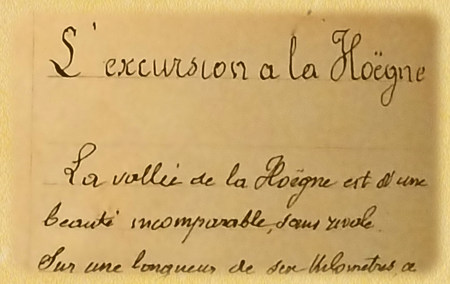 L'excursion a la Hoëgne
La vallée de la Hoëgne est d'une
beauté incomparable, sans rivale.
Sur une longueur de six kilomètres, a